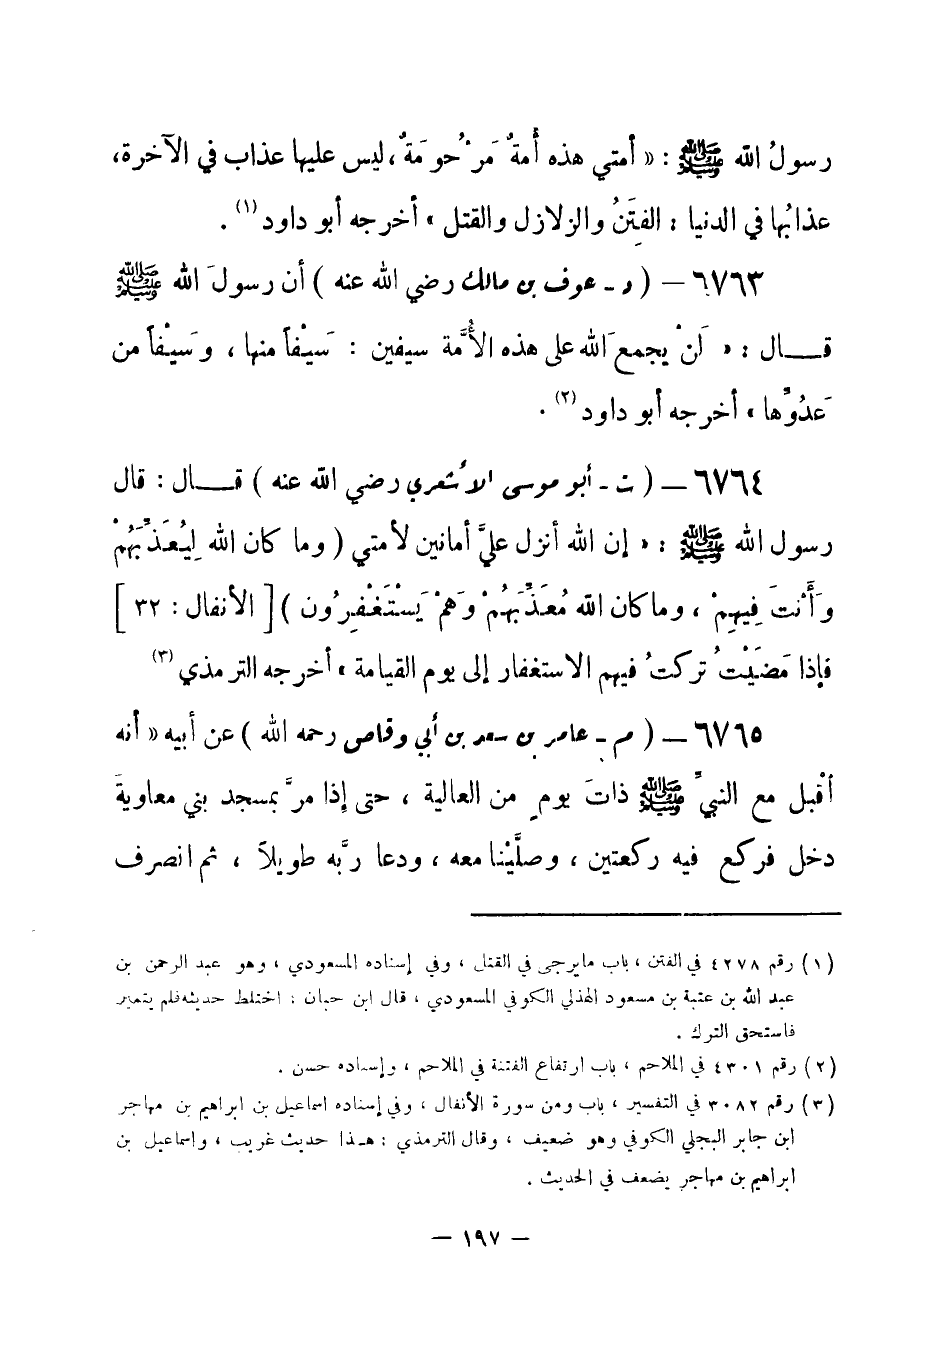 رسولُ الله ﷺ : « أمتي هذه أُمةٌ مَرْحُومَةٌ ، ليس عليها عذاب في الآخرة ،
عذابُها في الدنيا : الفِتَنُ والزلازل والقتل » أخرجه أبو داود (١) .
٦٧٦٣ — ( د - عوف بن مالك رضي الله عنه ) أن رسولَ الله ﷺ
قـــال : « لَنْ يجمعَ الله على هذه الأُمَّة سيفين : سَيْفاً منها ، وسَيْفاً من
عَدُوِّها » أخرجه أبو داود (٢) .
٦٧٦٤ — ( ت - أبو موسى الأشعري رضي الله عنه ) قـــال : قال
رسول الله ﷺ : « إن الله أنزل عليَّ أمانين لأمتي ( وما كان الله لِيُعَذِّبَهُمْ
وَأَنْتَ فِيهِمْ ، وما كان الله مُعَذِّبَهُمْ وَهُمْ يَسْتَغْفِرُون ) [ الأنفال : ٣٢ ]
فإذا مَضَيْتُ تركتُ فيهم الاستغفار إلى يوم القيامة » أخرجه الترمذي (٣)
٦٧٦٥ — ( م - عامر بن سعد بن أبي وقاص رحمه الله ) عن أبيه « أنه
أقْبل مع النبيِّ ﷺ ذاتَ يومٍ من العالية ، حتى إذا مرَّ بمسجد بني معاويةَ
دخل فركع فيه ركعتين ، وصلَّيْنا معه ، ودعا ربَّه طويلاً ، ثم انصرف
(١) رقم ٤٢٧٨ في الفتن ، باب مايرجى في القتل ، وفي إسناده المسعودي ، وهو عبد الرحمن بن
عبد الله بن عتبة بن مسعود الهذلي الكوفي المسعودي ، قال ابن حبان : اختلط حديثه فلم يتميز
فاستحق الترك .
(٢) رقم ٤٣٠١ في الملاحم ، باب ارتفاع الفتنة في الملاحم ، وإسناده حسن .
(٣) رقم ٣٠٨٢ في التفسير ، باب ومن سورة الأنفال ، وفي إسناده اسماعيل بن ابراهيم بن مهاجر
ابن جابر البجلي الكوفي وهو ضعيف ، وقال الترمذي : هـذا حديث غريب ، واسماعيل بن
ابراهيم بن مهاجر يضعف في الحديث .
— ١٩٧ —